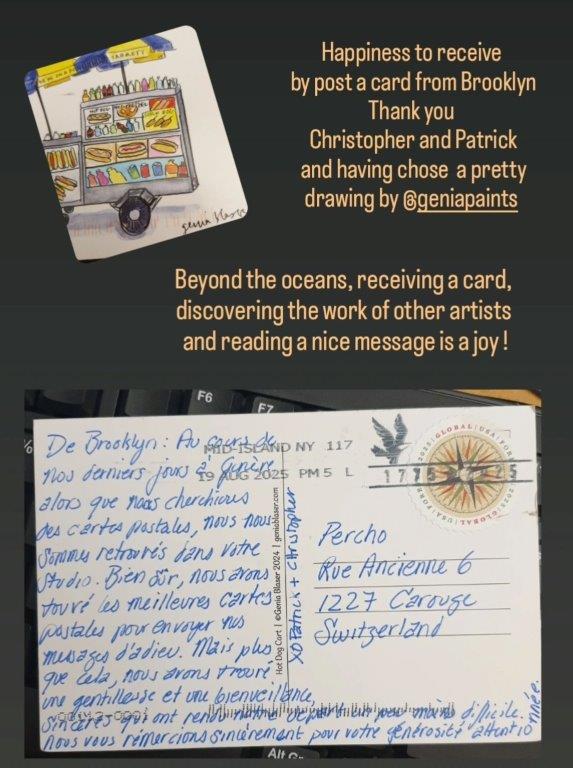 Happiness to receive
by post a card from Brooklyn
Thank you
Christopher and Patrick
and having chose a pretty
drawing by @geniapaints
genia blaser
Beyond the oceans, receiving a card,
discovering the work of other artists
and reading a nice message is a joy !
F6
F7
De Brooklyn : Au cours de
nos derniers jours à Genève
alors que nous cherchions
des cartes postales, nous nous
sommes retrouvés dans votre
studio. Bien sûr, nous avons
trouvé les meilleures cartes
postales pour envoyer nos
messages d'adieu. Mais plus
que cela, nous avons trouvé
une gentillesse et une bienveillance
sincères qui ont rendu notre départ un peu moins difficile.
Nous vous remercions sincèrement pour votre générosité attentionnée.
XO Patrick + Christopher
Hot Dog Cart | ©Genia Blaser 2024 | geniablaser.com
MID-ISLAND NY 117
19 AUG 2025 PM 5 L
1775 25
GLOBAL USA FOREVER 2025
Percho
Rue Ancienne 6
1227 Carouge
Switzerland
Alt Gr